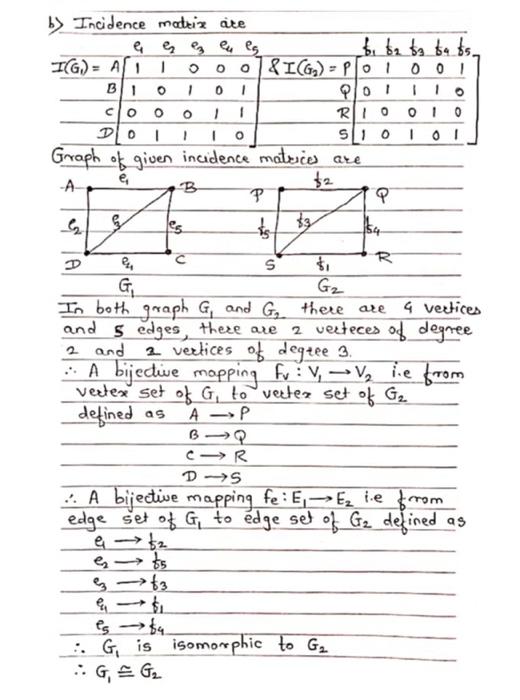 b) Incidence matrix are
e1 e2 e3 e4 e5 f1 f2 f3 f4 f5
I(G1) = A [ 1 1 0 0 0 ] & I(G2) = P [ 0 1 0 0 1 ]
B 1 0 1 0 1 Q 0 1 1 1 0
C 0 0 0 1 1 R 1 0 0 1 0
D 0 1 1 1 0 S 1 0 1 0 1
Graph of given incidence matrices are
A e1 B P f2 Q
e2 e3 e5 f5 f3 f4
D e4 C S f1 R
G1 G2
In both graph G1 and G2 there are 4 vertices
and 5 edges, there are 2 verteces of degree
2 and 2 vertices of degree 3.
∴ A bijective mapping fv : V1 → V2 i.e from
vertex set of G1 to vertex set of G2
defined as A → P
B → Q
C → R
D → S
∴ A bijective mapping fe : E1 → E2 i.e from
edge set of G1 to edge set of G2 defined as
e1 → f2
e2 → f5
e3 → f3
e4 → f1
e5 → f4
∴ G1 is isomorphic to G2
∴ G1 ≅ G2